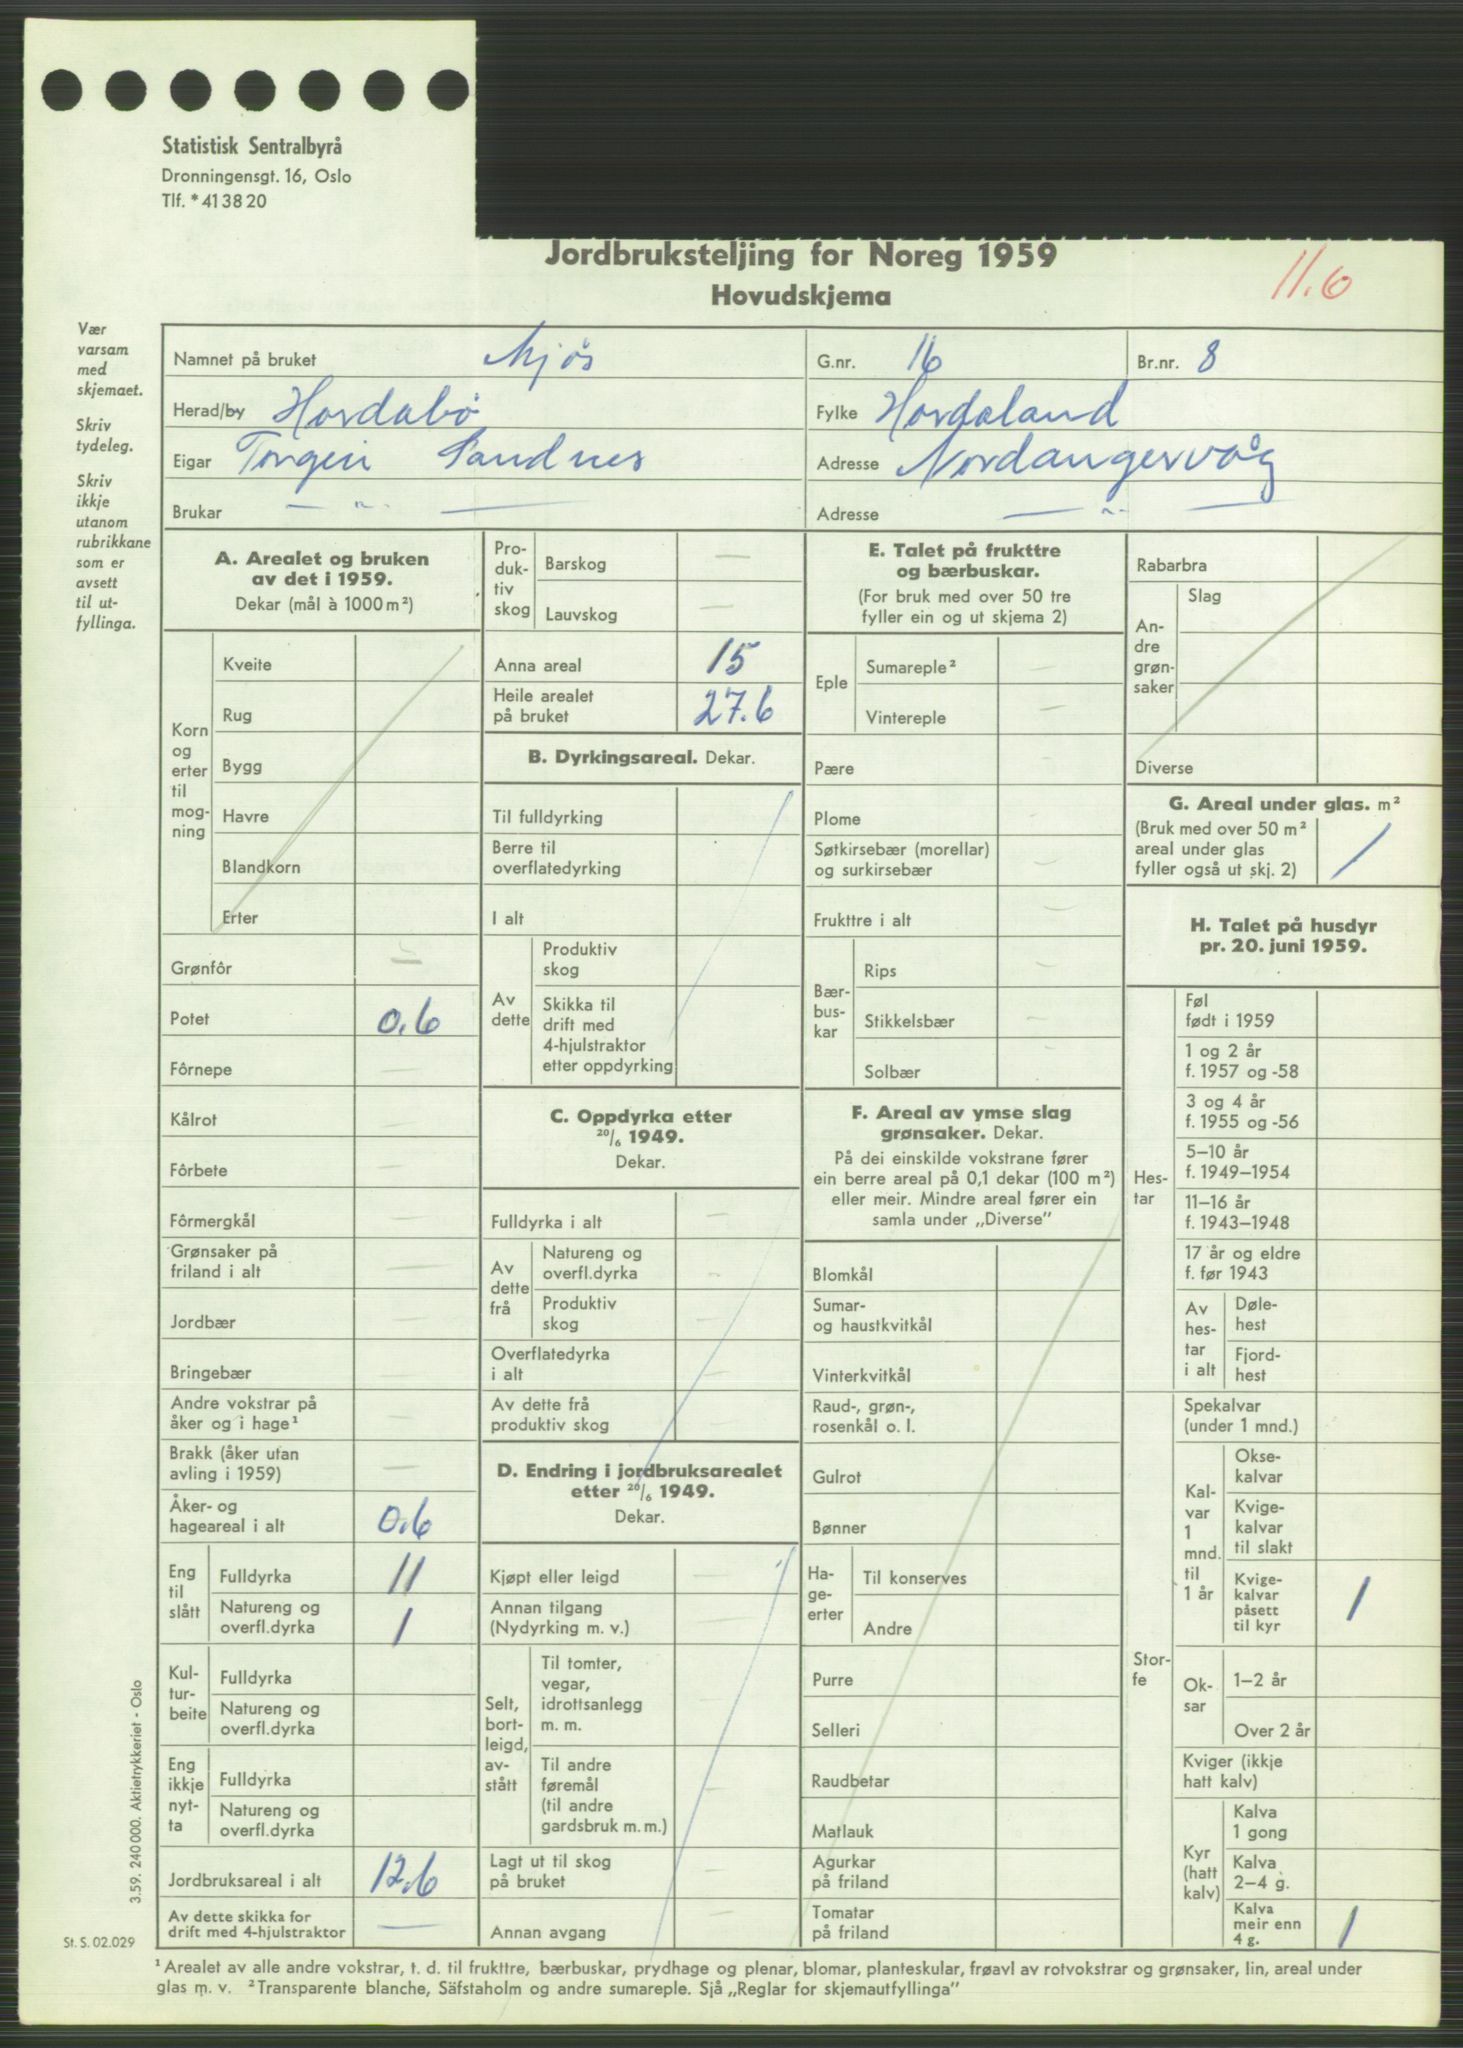 Statistisk Sentralbyrå
Dronningensgt. 16, Oslo
Tlf. * 41 38 20
Jordbruksteljing for Noreg 1959
Hovudskjema
11.6
Vær
varsam
med
skjemaet.
Skriv
tydeleg.
Skriv
ikkje
utanom
rubrikkane
som er
avsett
til ut-
fyllinga.
Namnet på bruket Mjøs G.nr. 16 Br.nr. 8
Herad/by Hordabø Fylke Hordaland
Eigar Torgeir Sandnes Adresse Nordangervåg
Brukar — " — Adresse — " —
A. Arealet og bruken
av det i 1959.
Dekar (mål à 1000 m²)
Korn
og
erter
til
mog-
ning
Kveite
Rug
Bygg
Havre
Blandkorn
Erter
Grønfôr —
Potet 0.6
Fôrnepe —
Kålrot —
Fôrbete —
Fôrmergkål —
Grønsaker på
friland i alt —
Jordbær —
Bringebær —
Andre vokstrar på
åker og i hage¹ —
Brakk (åker utan
avling i 1959) —
Åker- og
hageareal i alt 0.6
Eng
til
slått
Fulldyrka 11
Natureng og
overfl.dyrka 1
Kul-
tur-
beite
Fulldyrka
Natureng og
overfl.dyrka
Eng
ikkje
nyt-
ta
Fulldyrka
Natureng og
overfl.dyrka
Jordbruksareal i alt 12.6
Av dette skikka for
drift med 4-hjulstraktor —
Pro-
duk-
tiv
skog
Barskog —
Lauvskog —
Anna areal 15
Heile arealet
på bruket 27.6
B. Dyrkingsareal. Dekar.
Til fulldyrking
Berre til
overflatedyrking
I alt
Av
dette
Produktiv
skog
Skikka til
drift med
4-hjulstraktor
etter oppdyrking
C. Oppdyrka etter
20/6 1949.
Dekar.
Fulldyrka i alt —
Av
dette
frå
Natureng og
overfl.dyrka —
Produktiv
skog —
Overflatedyrka
i alt —
Av dette frå
produktiv skog —
D. Endring i jordbruksarealet
etter 20/6 1949.
Dekar.
Kjøpt eller leigd —
Annan tilgang
(Nydyrking m. v.) —
Selt,
bort-
leigd,
av-
stått
Til tomter,
vegar,
idrottsanlegg
m. m. —
Til andre
føremål
(til andre
gardsbruk m. m.) —
Lagt ut til skog
på bruket —
Annan avgang —
E. Talet på frukttre
og bærbuskar.
(For bruk med over 50 tre
fyller ein og ut skjema 2)
Eple
Sumareple² —
Vintereple —
Pære —
Plome —
Søtkirsebær (morellar)
og surkirsebær —
Frukttre i alt —
Bær-
bus-
kar
Rips —
Stikkelsbær —
Solbær
F. Areal av ymse slag
grønsaker. Dekar.
På dei einskilde vokstrane fører
ein berre areal på 0,1 dekar (100 m²)
eller meir. Mindre areal fører ein
samla under „Diverse”
Blomkål
Sumar-
og haustkvitkål
Vinterkvitkål
Raud-, grøn-,
rosenkål o. l.
Gulrot
Bønner
Ha-
ge-
erter
Til konserves
Andre
Purre
Selleri
Raudbetar
Matlauk
Agurkar
på friland
Tomatar
på friland
Rabarbra
An-
dre
grøn-
saker
Slag
Diverse
G. Areal under glas. m²
(Bruk med over 50 m²
areal under glas
fyller også ut skj. 2) /
H. Talet på husdyr
pr. 20. juni 1959.
Hes-
tar
Føl
født i 1959
1 og 2 år
f. 1957 og -58
3 og 4 år
f. 1955 og -56
5–10 år
f. 1949–1954
11–16 år
f. 1943–1948
17 år og eldre
f. før 1943
Av
hes-
tar
i alt
Døle-
hest
Fjord-
hest
Stor-
fe
Spekalvar
(under 1 mnd.)
Kal-
var
1
mnd.
til
1 år
Okse-
kalvar
Kvige-
kalvar
til slakt
Kvige-
kalvar
påsett
til kyr 1
Ok-
sar
1–2 år
Over 2 år
Kviger (ikkje
hatt kalv)
Kyr
(hatt
kalv)
Kalva
1 gong
Kalva
2–4 g.
Kalva
meir enn
4 g. 1
3.59. 240 000. Aktietrykkeriet - Oslo
St. S. 02.029
¹ Arealet av alle andre vokstrar, t. d. til frukttre, bærbuskar, prydhage og plenar, blomar, planteskular, frøavl av rotvokstrar og grønsaker, lin, areal under
glas m. v. ² Transparente blanche, Säfstaholm og andre sumareple. Sjå „Reglar for skjemautfyllinga”